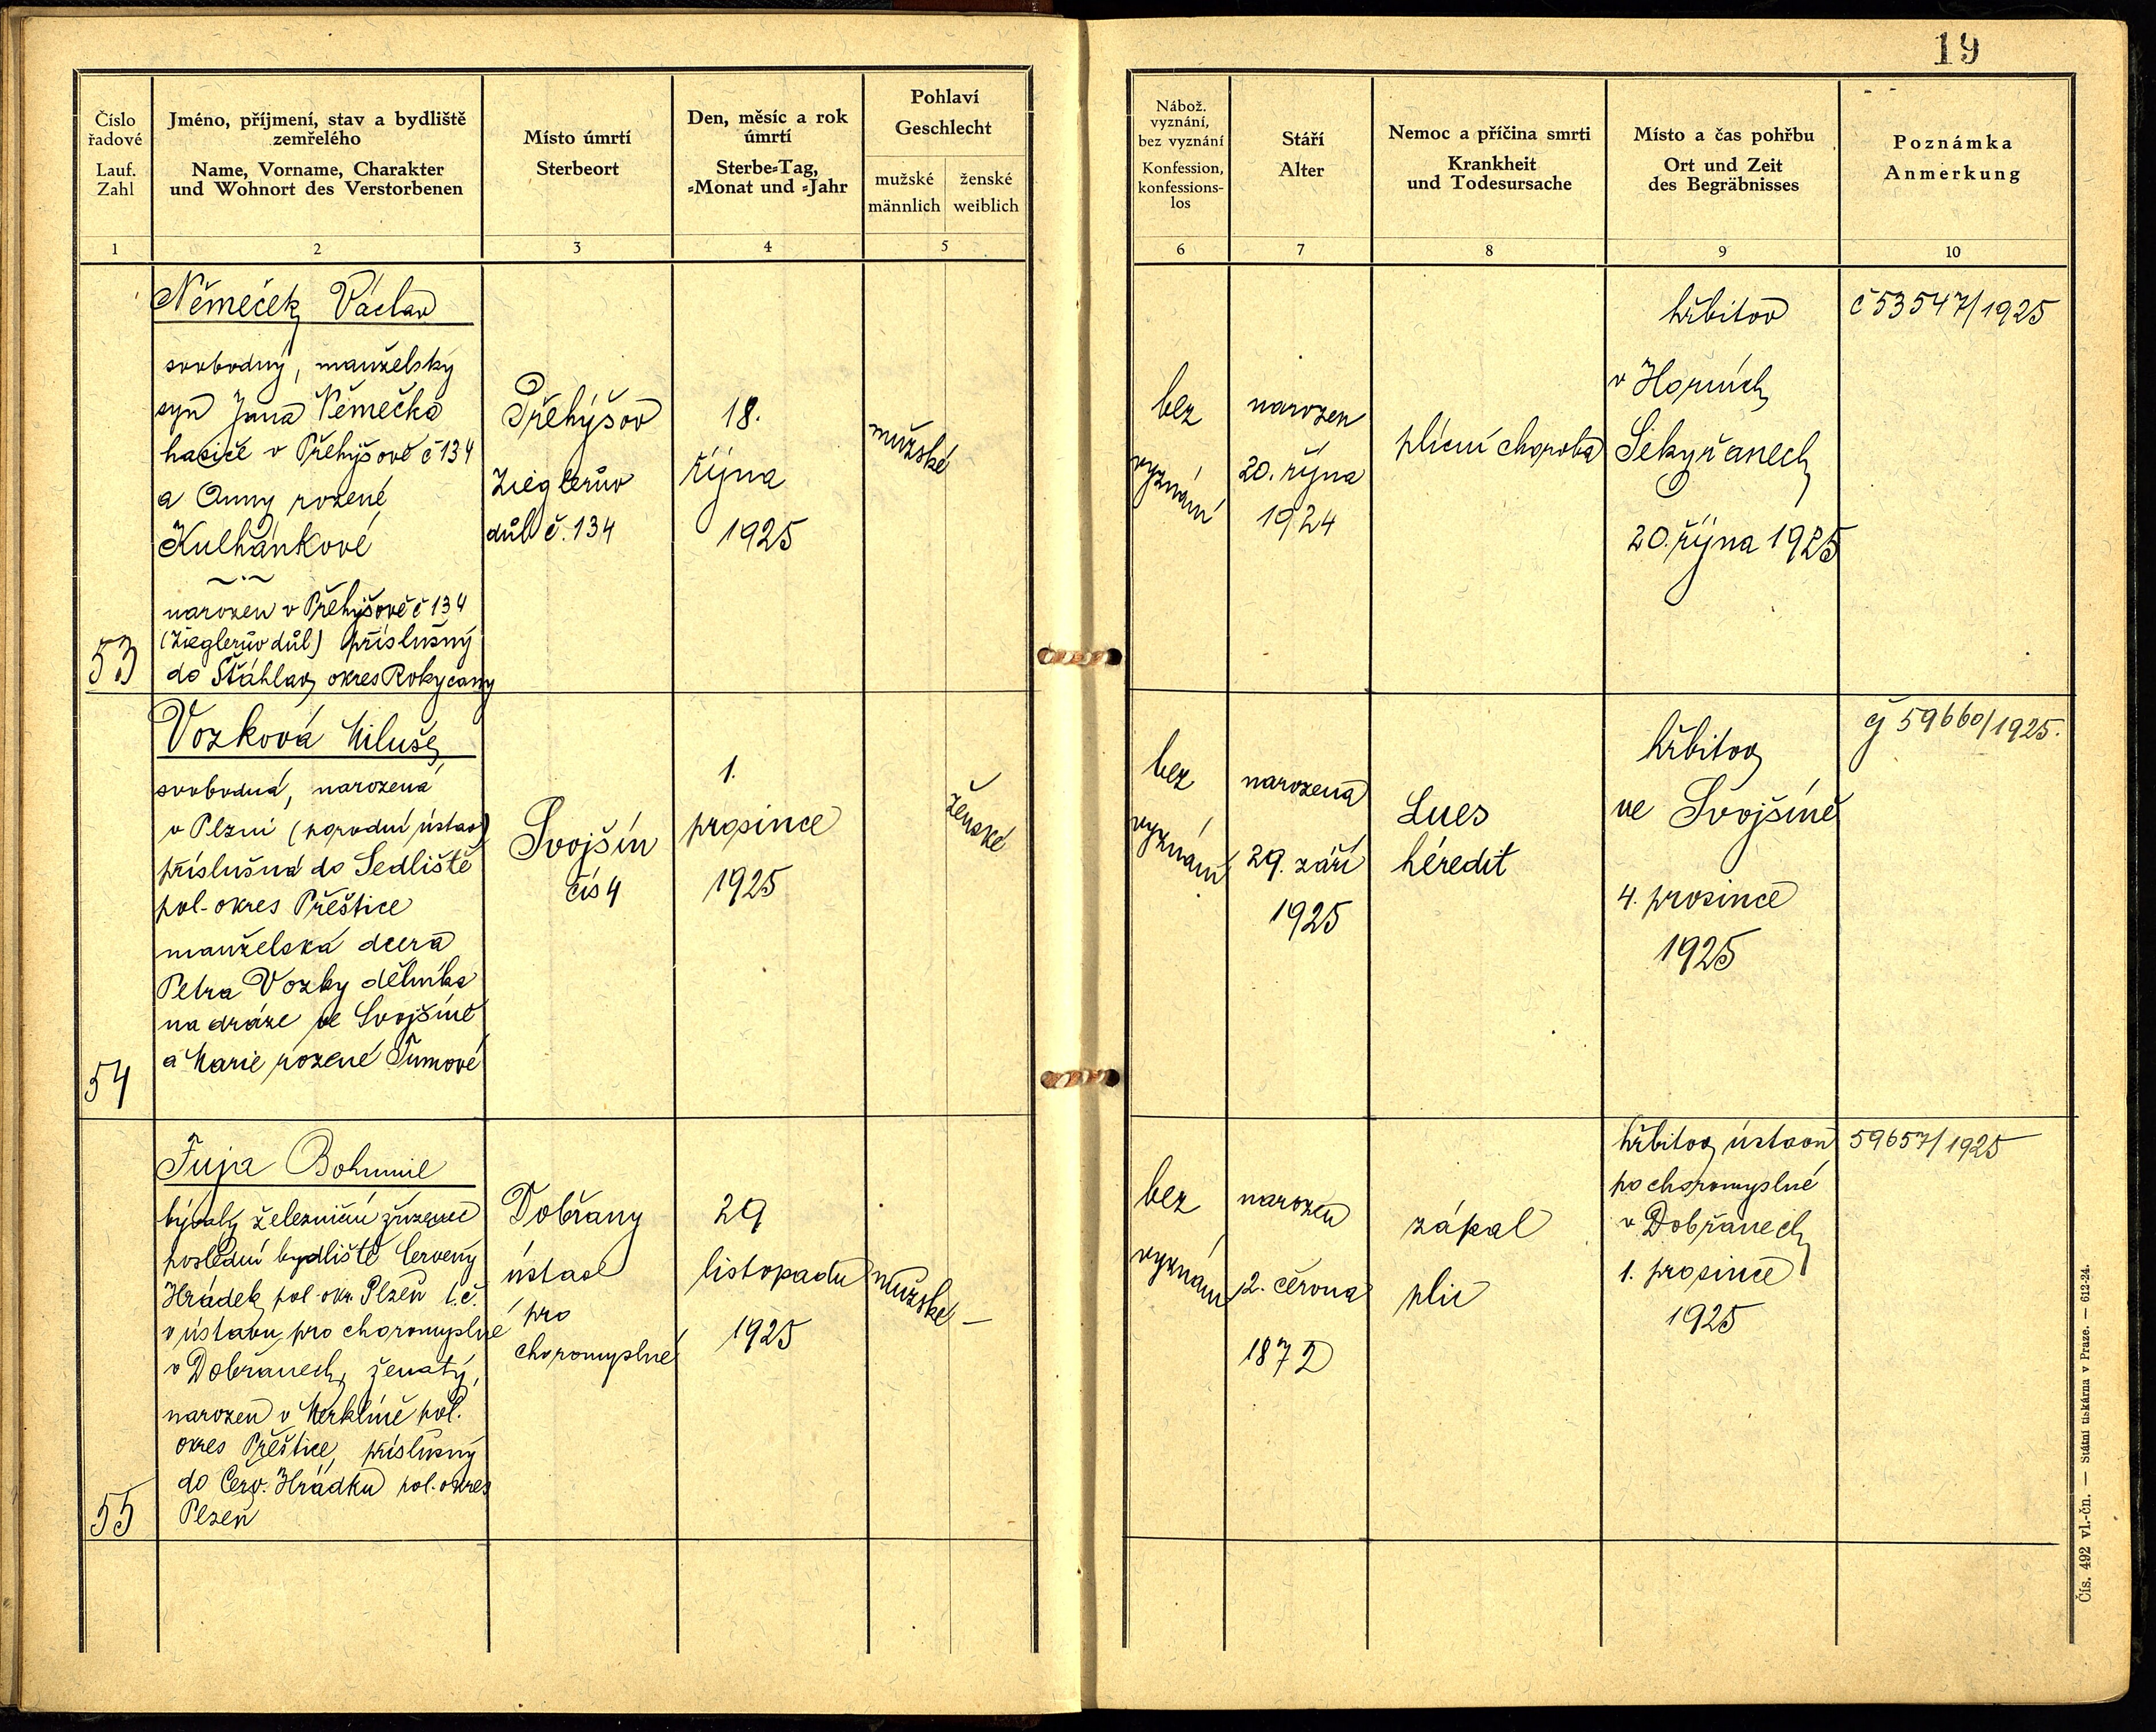 19
Číslo
řadové
Lauf.
Zahl
Jméno, příjmení, stav a bydliště
zemřelého
Name, Vorname, Charakter
und Wohnort des Verstorbenen
Místo úmrtí
Sterbeort
Den, měsíc a rok
úmrtí
Sterbe=Tag,
=Monat und =Jahr
Pohlaví
Geschlecht
mužské
männlich
ženské
weiblich
Nábož.
vyznání,
bez vyznání
Konfession,
konfessions-
los
Stáří
Alter
Nemoc a příčina smrti
Krankheit
und Todesursache
Místo a čas pohřbu
Ort und Zeit
des Begräbnisses
Poznámka
Anmerkung
1
2
3
4
5
6
7
8
9
10
53
Němeček Václav
svobodný, manželský
syn Jana Němečka
hasiče v Přehýšově č 134
a Anny rozené
Kulhánkové
narozen v Přehýšově č 134
(Zieglerův důl) příslušný
do Šťáhlav okres Rokycany
Přehýšov
Zieglerův
důl č. 134
18.
října
1925
mužské
bez
vyznání
narozen
20. října
1924
plícní choroba
hřbitov
v Horních
Sekyřanech
20. října 1925
č 53547/1925
54
Vozková Miluše,
svobodná, narozená
v Plzni (porodní ústav)
příslušná do Sedliště
pol. okres Přeštice
manželská dcera
Petra Vozky dělníka
na dráze ve Svojšíně
a Marie rozené Tumové
Svojšín
čís 4
1.
prosince
1925
ženské
bez
vyznání
narozena
29. září
1925
Lues
héredit
hřbitov
ve Svojšíně
4. prosince
1925
č 59660/1925.
55
Fuja Bohumil
bývalý železniční zřízenec
poslední bydliště Červený
Hrádek pol. okr. Plzeň t.č.
v ústavu pro choromyslné
v Dobřanech, ženatý,
narozen v Merklíně pol.
okres Přeštice, příslušný
do Červ. Hrádku pol. okres
Plzeň
Dobřany
ústav
pro
choromyslné
29
listopadu
1925
mužské —
bez
vyznání
narozen
12. června
1872
zápal
plic
hřbitov ústavu
po choromyslné
v Dobřanech
1. prosince
1925
59657/1925
Čís. 492 vl.-čn. — Státní tiskárna v Praze. — 612-24.